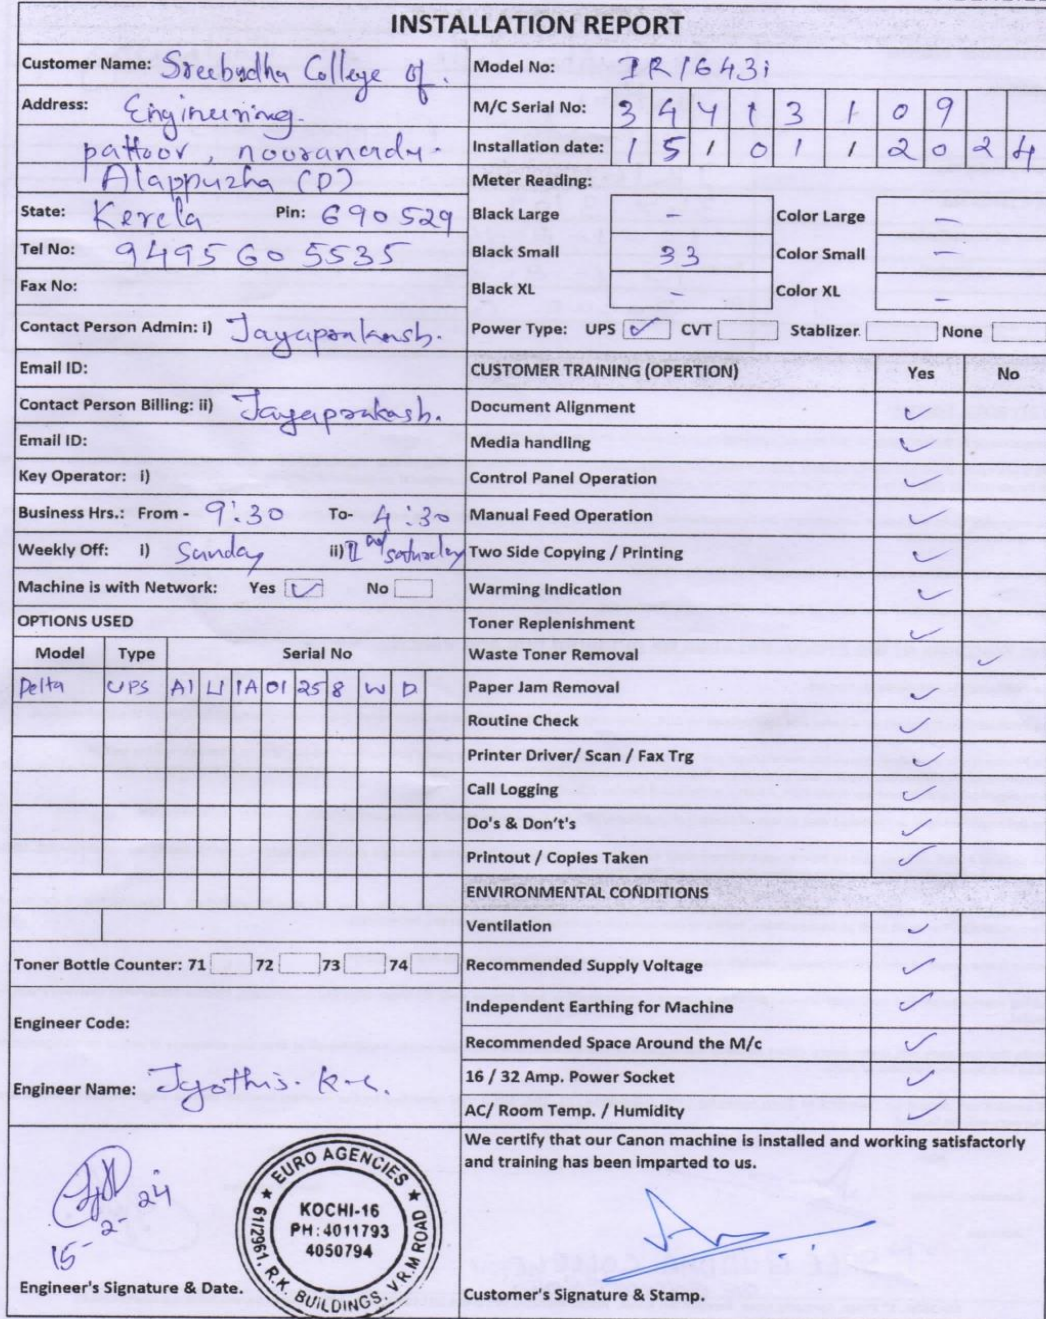 INSTALLATION REPORT
Customer Name: Sreebudha College of
Address: Engineering.
pattoor, nooranadu.
Alappuzha (D)
State: Kerela Pin: 690529
Tel No: 9495 60 5535
Fax No:
Contact Person Admin: i) Jayaprakash.
Email ID:
Contact Person Billing: ii) Jayaprakash.
Email ID:
Key Operator: i)
Business Hrs.: From - 9:30 To- 4:30
Weekly Off: i) Sunday ii) saturday
Machine is with Network: Yes ✓ No
OPTIONS USED
Model Type Serial No
Delta UPS
Toner Bottle Counter: 71 72 73 74
Engineer Code:
Engineer Name: Jyothis. K.C.
15-2-24
Engineer's Signature & Date.
★ EURO AGENCIES ★
61/2961, R.K. BUILDINGS, V.R.M ROAD
KOCHI-16
PH:4011793
4050794
Model No: IR1643i
M/C Serial No: 34413109
Installation date: 15/01/2024
Meter Reading:
Black Large - Color Large -
Black Small 33 Color Small -
Black XL - Color XL -
Power Type: UPS ✓ CVT Stablizer None
CUSTOMER TRAINING (OPERTION) Yes No
Document Alignment ✓
Media handling ✓
Control Panel Operation ✓
Manual Feed Operation ✓
Two Side Copying / Printing ✓
Warming Indication ✓
Toner Replenishment ✓
Waste Toner Removal ✓
Paper Jam Removal ✓
Routine Check ✓
Printer Driver/ Scan / Fax Trg ✓
Call Logging ✓
Do's & Don't's ✓
Printout / Copies Taken ✓
ENVIRONMENTAL CONDITIONS
Ventilation ✓
Recommended Supply Voltage ✓
Independent Earthing for Machine ✓
Recommended Space Around the M/c ✓
16 / 32 Amp. Power Socket ✓
AC/ Room Temp. / Humidity ✓
We certify that our Canon machine is installed and working satisfactorly
and training has been imparted to us.
Customer's Signature & Stamp.